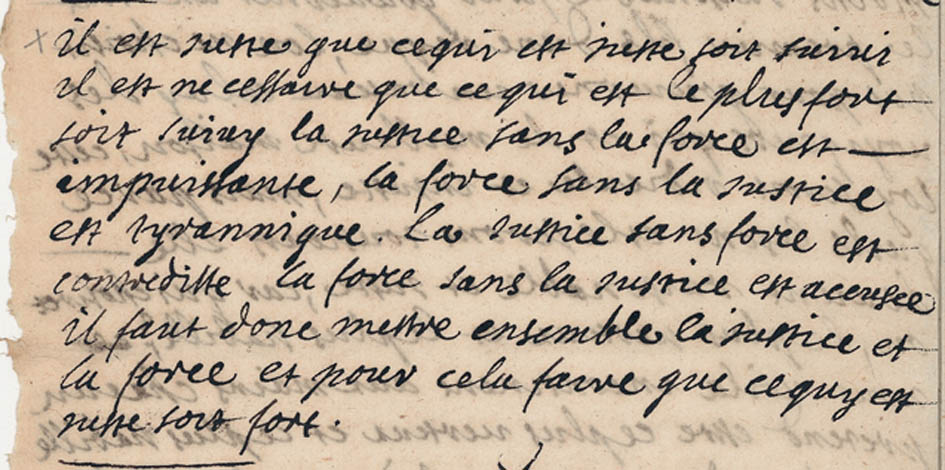 x il est juste que ce qui est juste soit suivi
il est necessaire que ce qui est le plus fort
soit suivy la justice sans la force est
impuissante, la force sans la justice
est tyrannique. La justice sans force est
contreditte la force sans la justice est accusee
il faut donc mettre ensemble la justice et
la force et pour cela faire que ce quy est
juste soit fort.